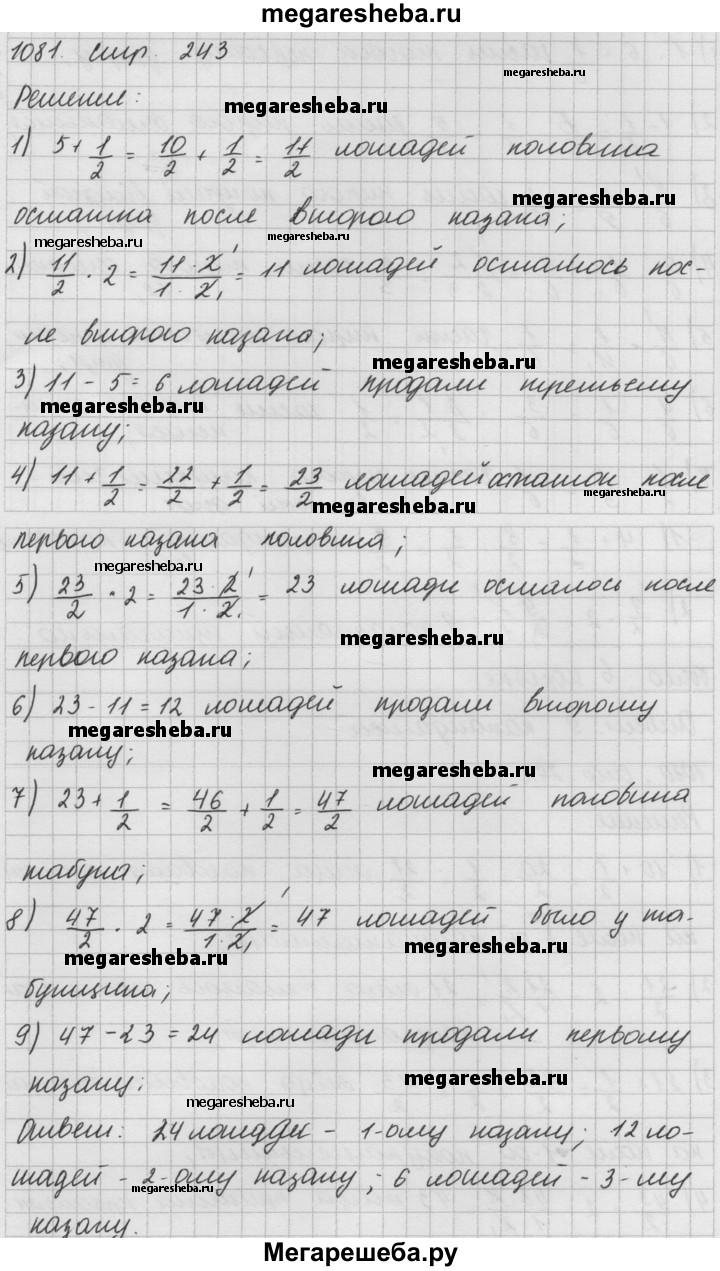 megaresheba.ru
1081. стр. 243
megaresheba.ru
Решение:
megaresheba.ru
1) 5 + 1/2 = 10/2 + 1/2 = 11/2 лошадей половина
megaresheba.ru
остатка после второго казака;
megaresheba.ru
megaresheba.ru
2) 11/2 · 2 = 11 · 2 / 1 · 2 = 11 лошадей осталось пос-
ле второго казака;
megaresheba.ru
3) 11 - 5 = 6 лошадей продали третьему
megaresheba.ru
казаку;
4) 11 + 1/2 = 22/2 + 1/2 = 23/2 лошадей остаток после
megaresheba.ru
megaresheba.ru
первого казака половина;
megaresheba.ru
5) 23/2 · 2 = 23 · 2 / 1 · 2 = 23 лошади осталось после
megaresheba.ru
первого казака;
6) 23 - 11 = 12 лошадей продали второму
megaresheba.ru
казаку;
megaresheba.ru
7) 23 + 1/2 = 46/2 + 1/2 = 47/2 лошадей половина
табуна;
8) 47/2 · 2 = 47 · 2 / 1 · 2 = 47 лошадей было у та-
megaresheba.ru
megaresheba.ru
бунщика;
9) 47 - 23 = 24 лошади продали первому
казаку.
megaresheba.ru
megaresheba.ru
Ответ: 24 лошади - 1-ому казаку; 12 ло-
шадей - 2-ому казаку; 6 лошадей - 3-му
megaresheba.ru
megaresheba.ru
казаку.
Мегарешеба.ру